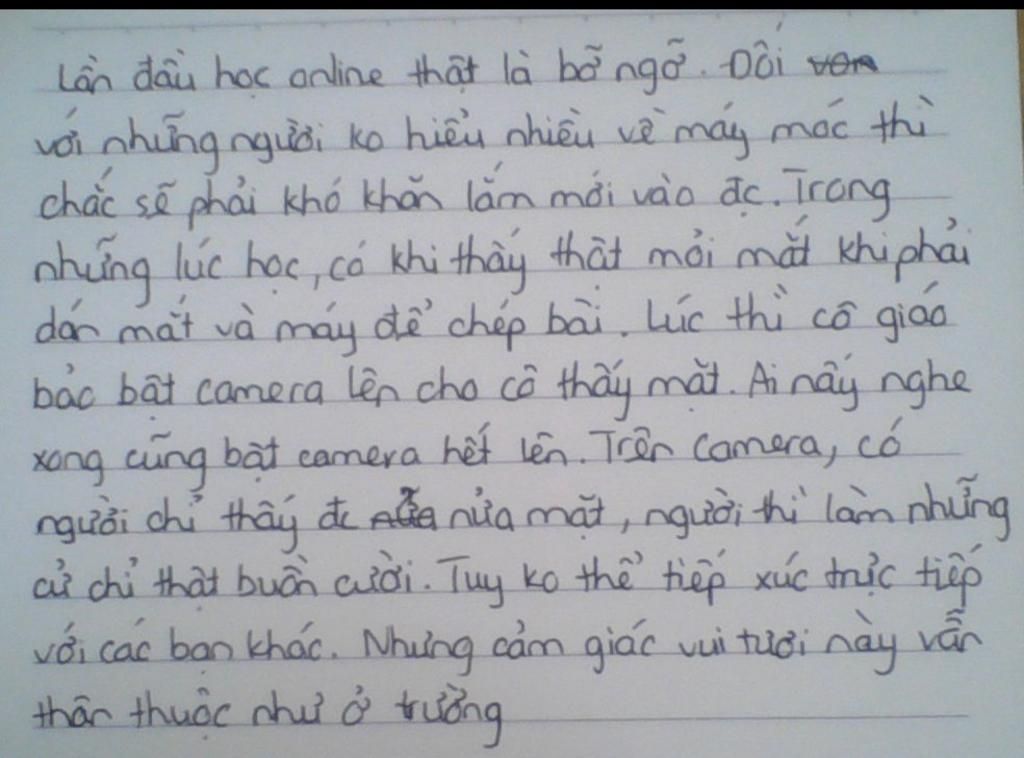 Lần đầu học online thật là bỡ ngỡ. Đối
với những người ko hiểu nhiều về máy móc thì
chắc sẽ phải khó khăn lắm mới vào đc. Trong
những lúc học, có khi thấy thật mỏi mắt khi phải
dán mắt và máy để chép bài. Lúc thì cô giáo
bảo bật camera lên cho cô thấy mặt. Ai nấy nghe
xong cũng bật camera hết lên. Trên camera, có
người chỉ thấy đc nửa mặt, người thì làm những
cử chỉ thật buồn cười. Tuy ko thể tiếp xúc trực tiếp
với các bạn khác. Nhưng cảm giác vui tươi này vẫn
thân thuộc như ở trường